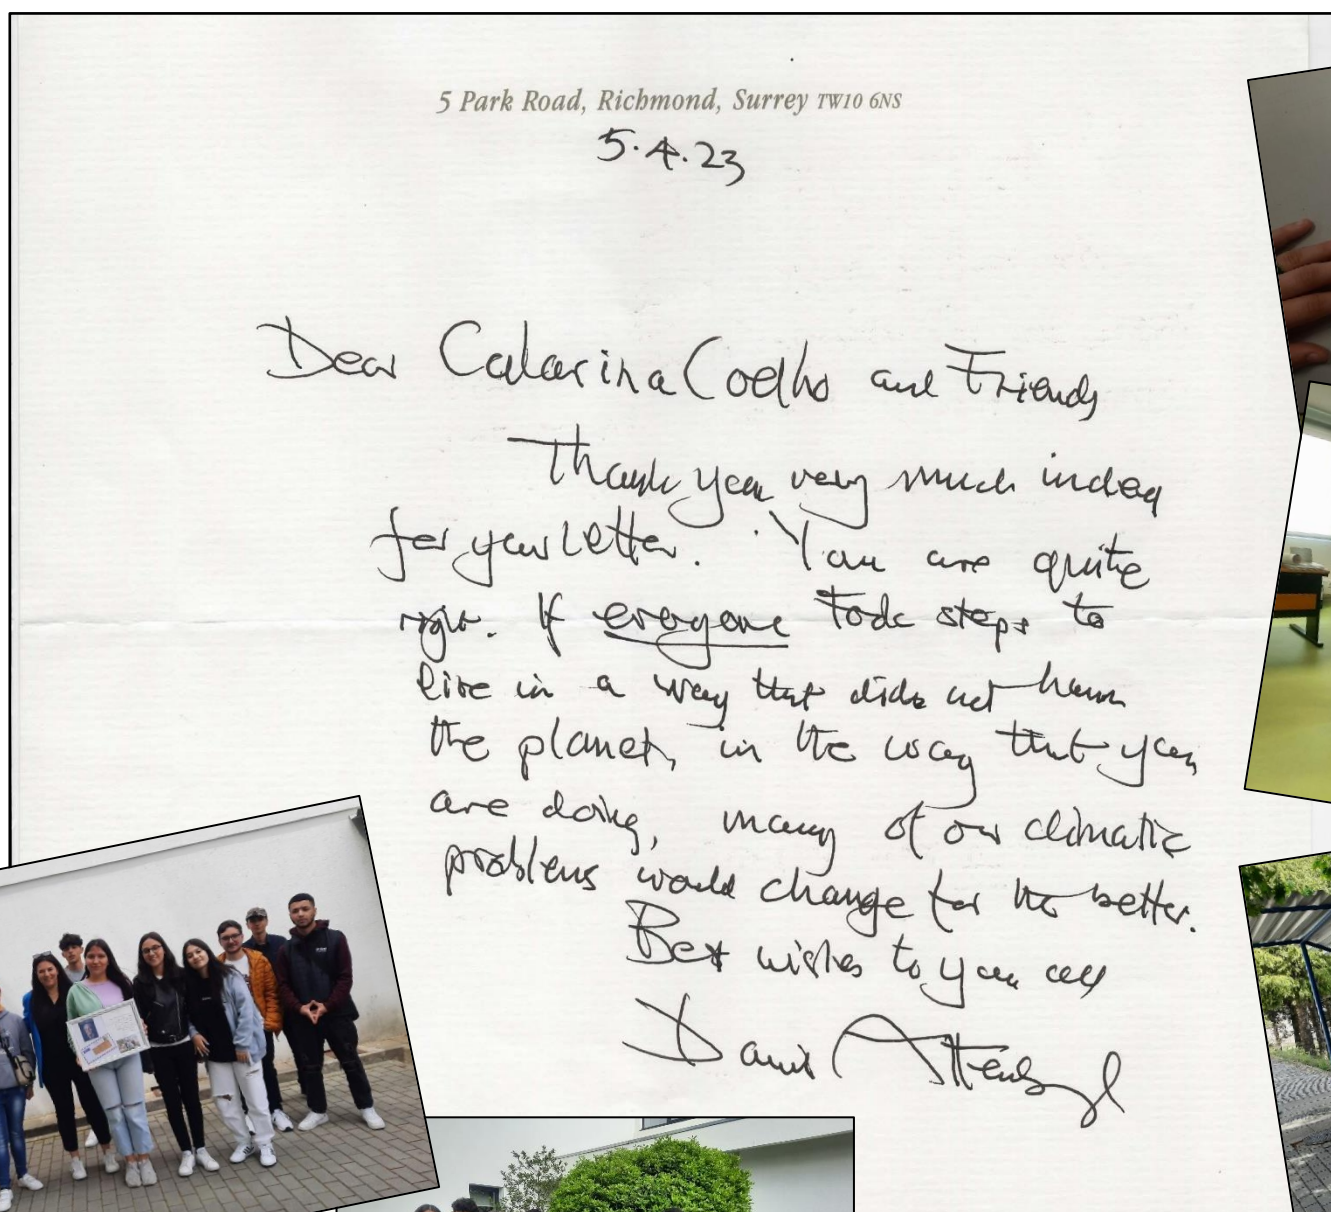 5 Park Road, Richmond, Surrey TW10 6NS
5.4.23
Dear Catarina Coelho and Friends
Thank you very much indeed
for your letter. You are quite
right. If everyone took steps to
live in a way that did not harm
the planet, in the way that you
are doing, many of our climatic
problems would change for the better.
Best wishes to you all
David Attenborough